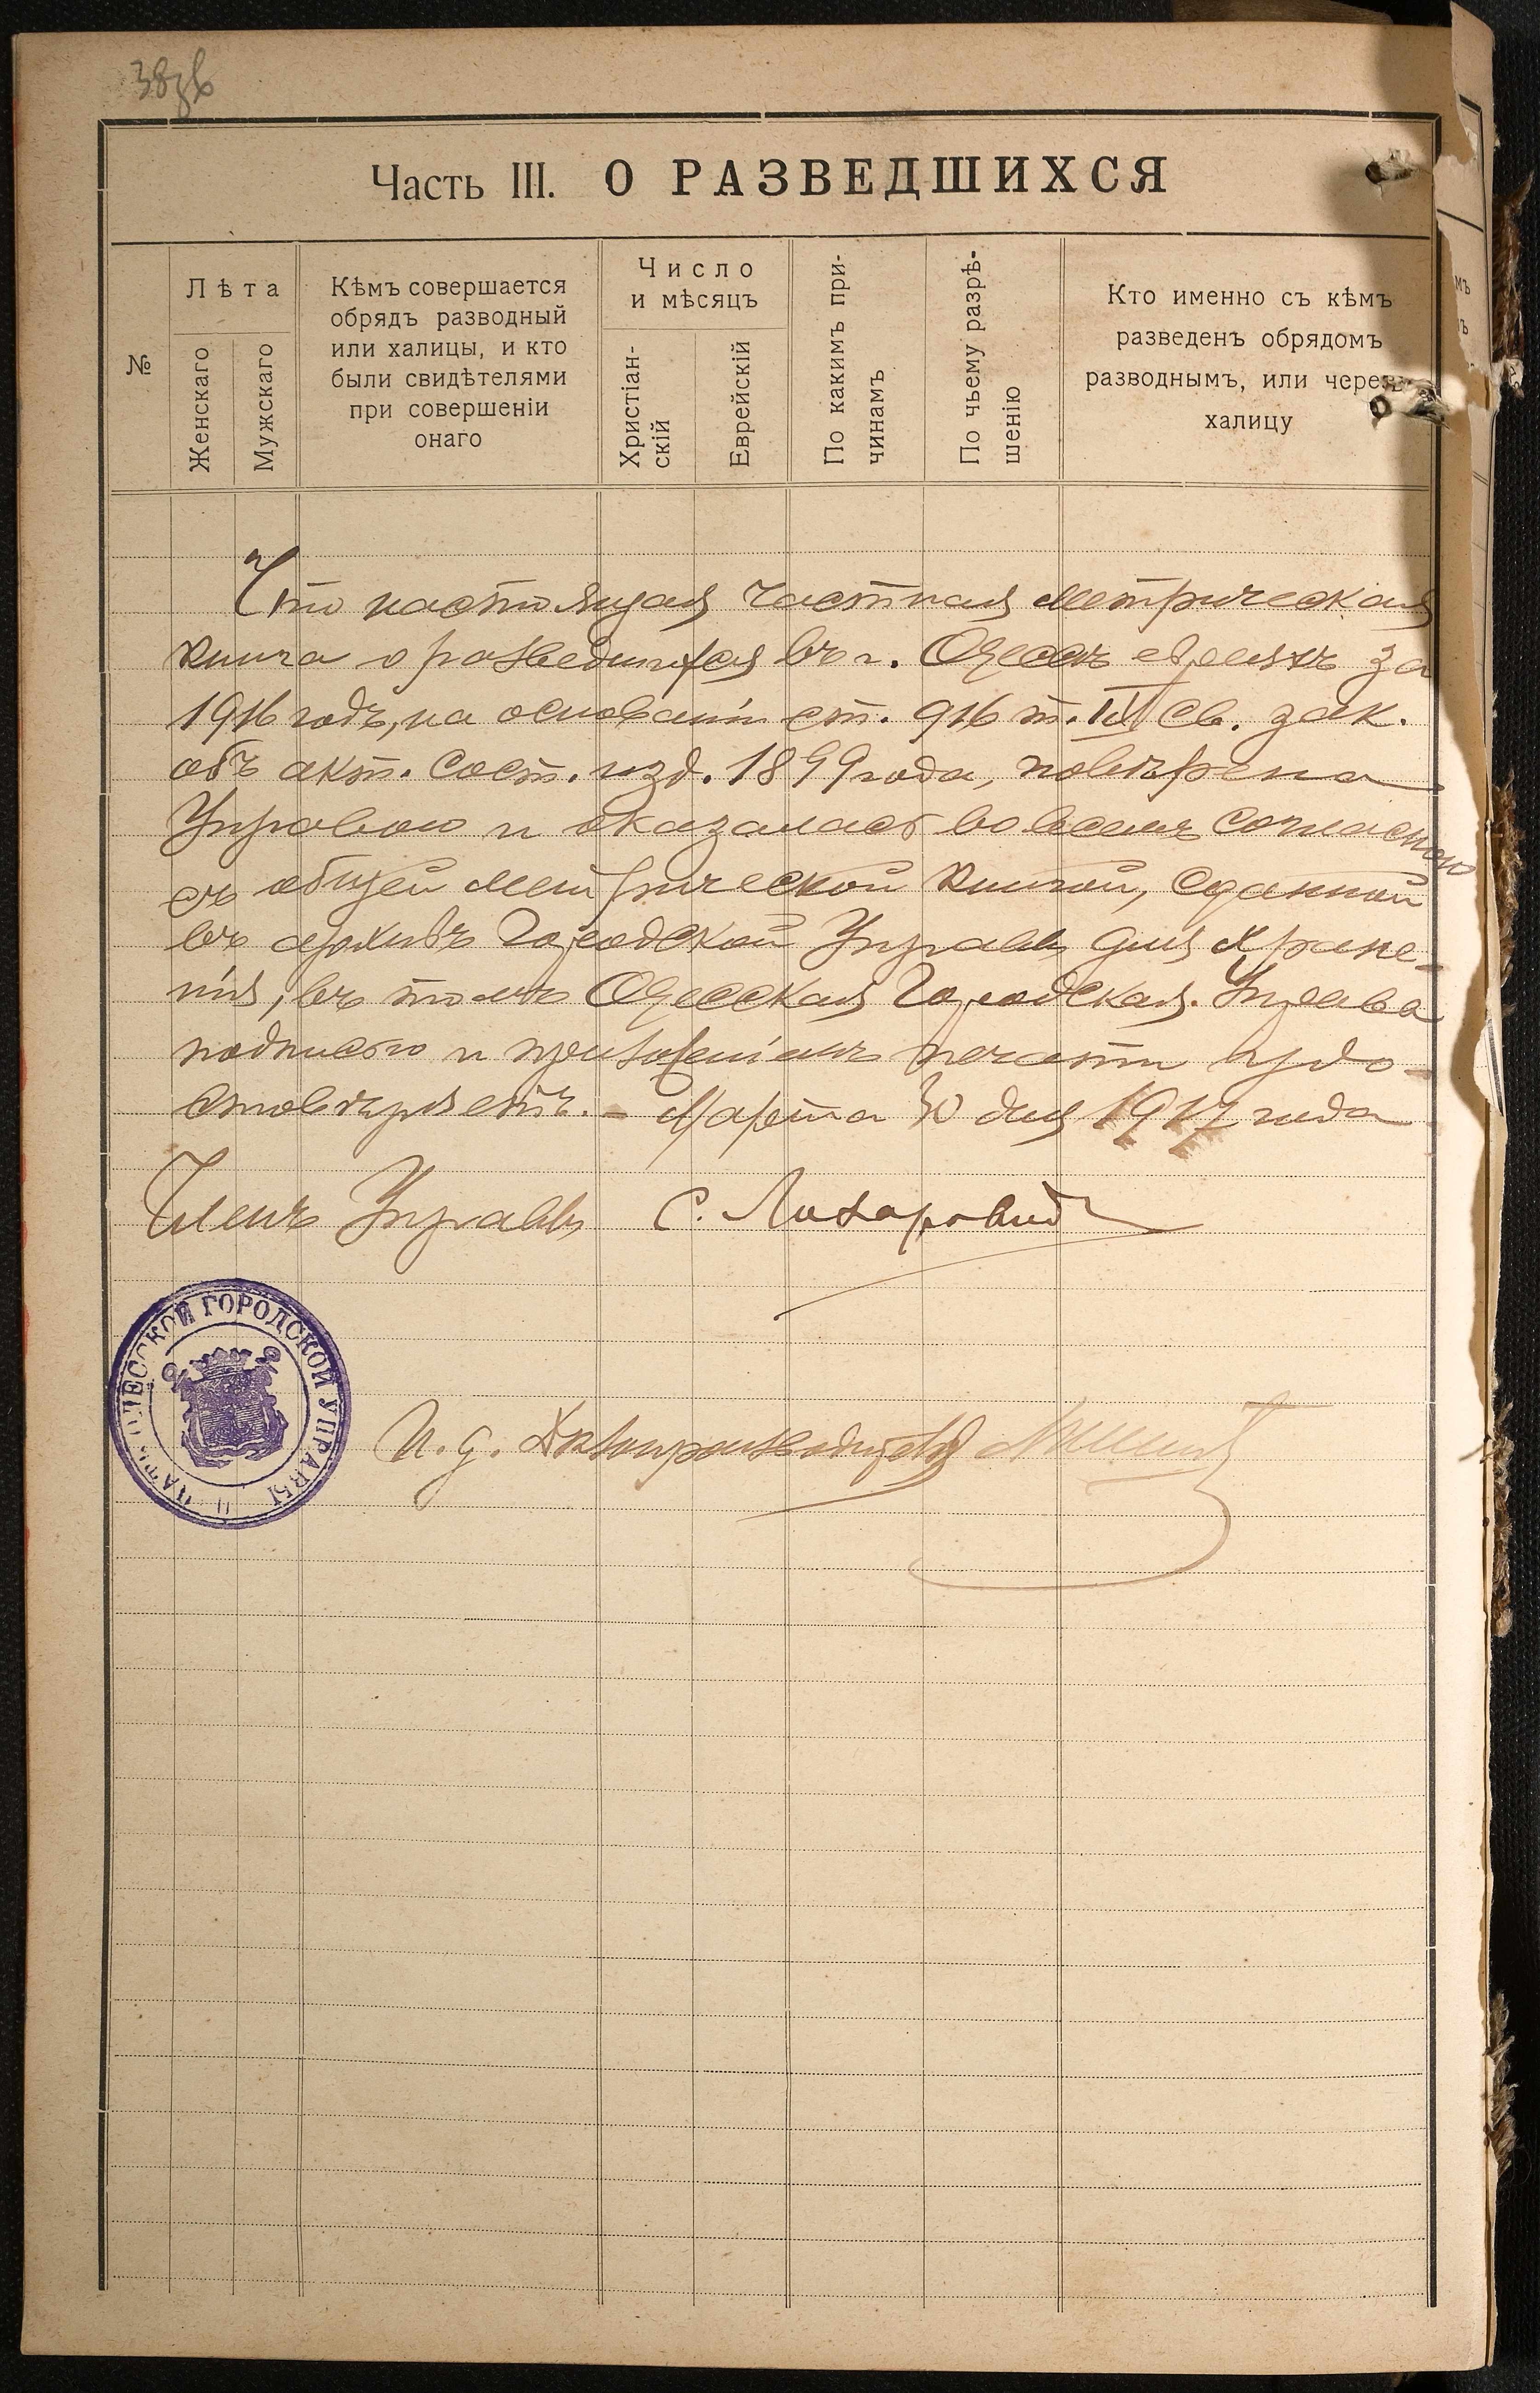 38
Часть III. О РАЗВЕДШИХСЯ
№
Лѣта
Женскаго
Мужскаго
Кѣмъ совершается
обрядъ разводный
или халицы, и кто
были свидѣтелями
при совершеніи
онаго
Число
и мѣсяцъ
Христіан-
скій
Еврейскій
По какимъ при-
чинамъ
По чьему разрѣ-
шенію
Кто именно съ кѣмъ
разведенъ обрядомъ
разводнымъ, или черезъ
халицу
Что настоящая частная метрическая
книга о разведшихся въ г. Одессѣ евреяхъ за
1916 годъ, на основаніи ст. 916 т. IX св. зак.
объ акт. сост. изд. 1899 года, повѣрена
Управою и оказалась во всемъ согласною
съ общей метрической книгой, сданной
въ архивъ Городской Управы для хране-
нія, въ томъ Одесская Городская Управа
подписью и приложеніемъ печати удо-
стовѣряетъ. - Марта 30 дня 1917 года
Членъ Управы
И. д. Дѣлопроизводителя
ПЕЧАТЬ ОДЕССКОЙ ГОРОДСКОЙ УПРАВЫ